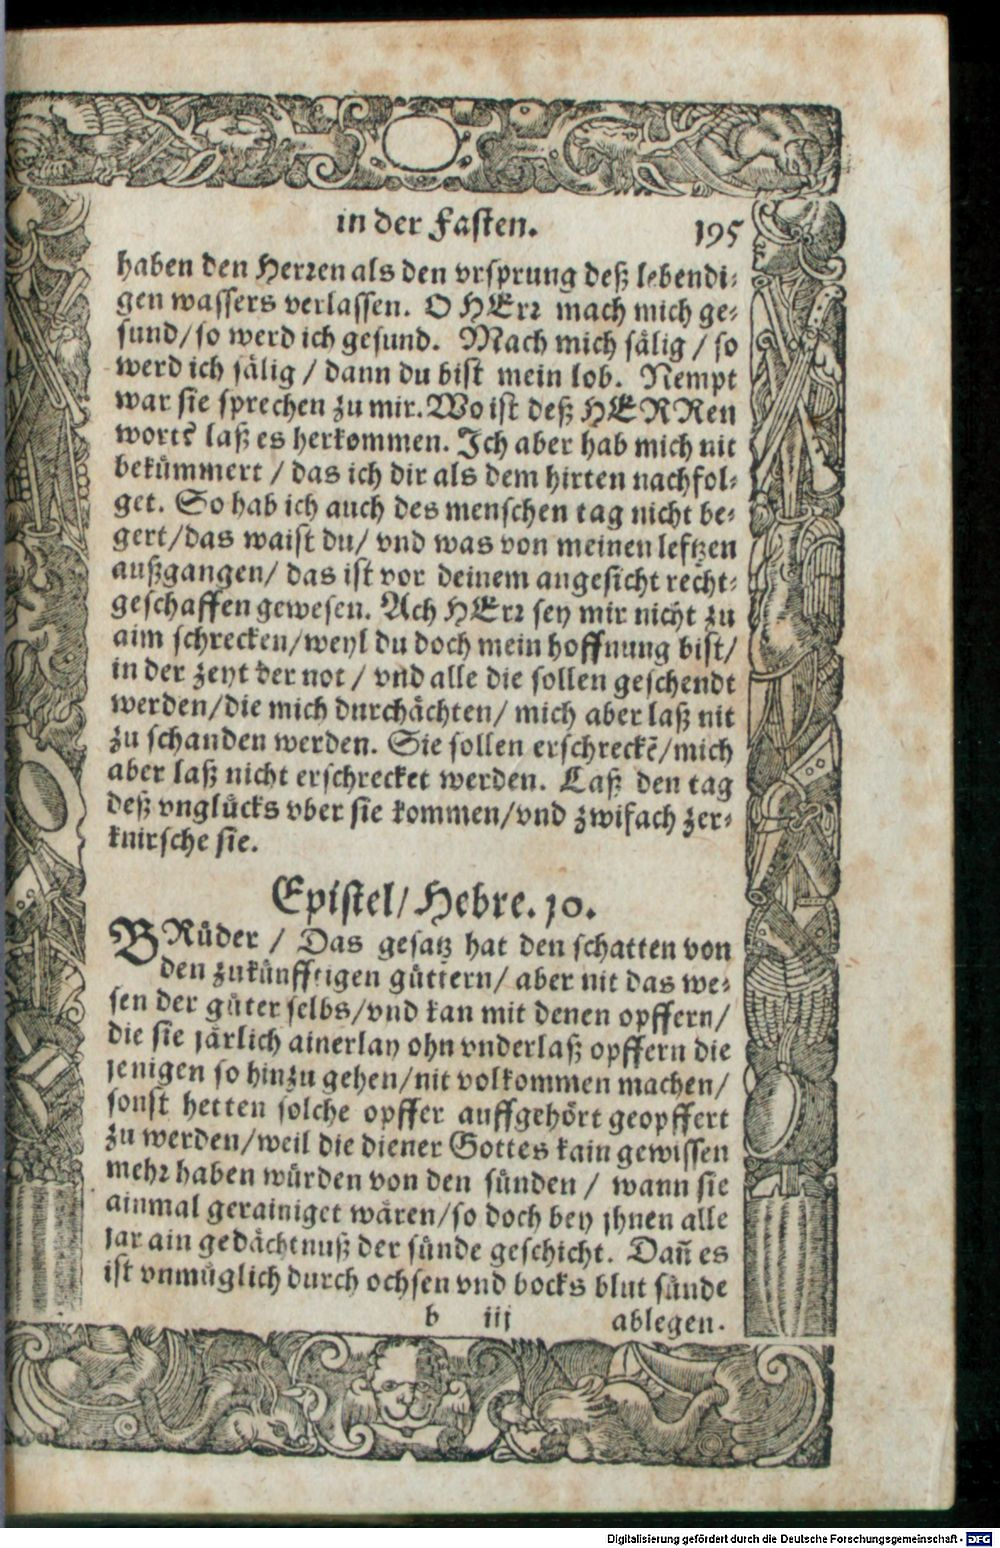 in der Fasten. 195
haben den Herꝛen als den vrsprung deß lebendi-
gen wassers verlassen. O HErꝛ mach mich ge-
sund/so werd ich gesund. Mach mich sälig / so
werd ich sälig / dann du bist mein lob. Nempt
war sie sprechen zu mir. Wo ist deß HERRen
wort? laß es herkommen. Ich aber hab mich nit
bekümmert / das ich dir als dem hirten nachfol-
get. So hab ich auch des menschen tag nicht be-
gert/das waist du/ vnd was von meinen lefftzen
außgangen/ das ist vor deinem angesicht recht-
geschaffen gewesen. Ach HErꝛ sey mir nicht zu
aim schrecken/weyl du doch mein hoffnung bist/
in der zeyt der not / vnd alle die sollen geschendt
werden/die mich durchächten/ mich aber laß nit
zu schanden werden. Sie sollen erschreckẽ/mich
aber laß nicht erschrecket werden. Laß den tag
deß vnglücks vber sie kommen/vnd zwifach zer-
knirsche sie.
Epistel/ Hebre. 10.
BRüder / Das gesatz hat den schatten von
den zukünfftigen güttern/ aber nit das we-
sen der güter selbs/vnd kan mit denen opffern/
die sie järlich ainerlay ohn vnderlaß opffern die
jenigen so hinzu gehen/nit volkommen machen/
sonst hetten solche opffer auffgehört geopffert
zu werden/weil die diener Gottes kain gewissen
mehꝛ haben würden von den sünden / wann sie
ainmal gerainiget wären/so doch bey jhnen alle
jar ain gedächtnuß der sünde geschicht. Dañ es
ist vnmüglich durch ochsen vnd bocks blut sünde
b iij ablegen.
Digitalisierung gefördert durch die Deutsche Forschungsgemeinschaft - DFG